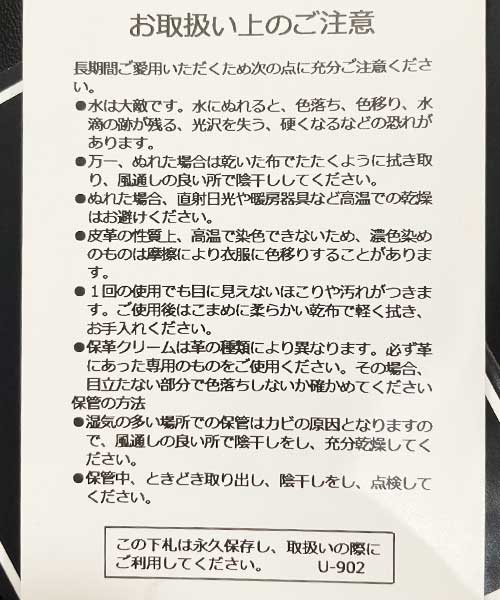 お取扱い上のご注意
長期間ご愛用いただくため次の点に充分ご注意くださ
い。
●水は大敵です。水にぬれると、色落ち、色移り、水
滴の跡が残る、光沢を失う、硬くなるなどの恐れが
あります。
●万一、ぬれた場合は乾いた布でたたくように拭き取
り、風通しの良い所で陰干ししてください。
●ぬれた場合、直射日光や暖房器具など高温での乾燥
はお避けください。
●皮革の性質上、高温で染色できないため、濃色染め
のものは摩擦により衣服に色移りすることがありま
す。
●１回の使用でも目に見えないほこりや汚れがつきま
す。ご使用後はこまめに柔らかい乾布で軽く拭き、
お手入れください。
●保革クリームは革の種類により異なります。必ず革
にあった専用のものをご使用ください。その場合、
目立たない部分で色落ちしないか確かめてください
保管の方法
●湿気の多い場所での保管はカビの原因となりますの
で、風通しの良い所で陰干しをし、充分乾燥してく
ださい。
●保管中、ときどき取り出し、陰干しをし、点検して
ください。
この下札は永久保存し、取扱いの際に
ご利用してください。 U-902